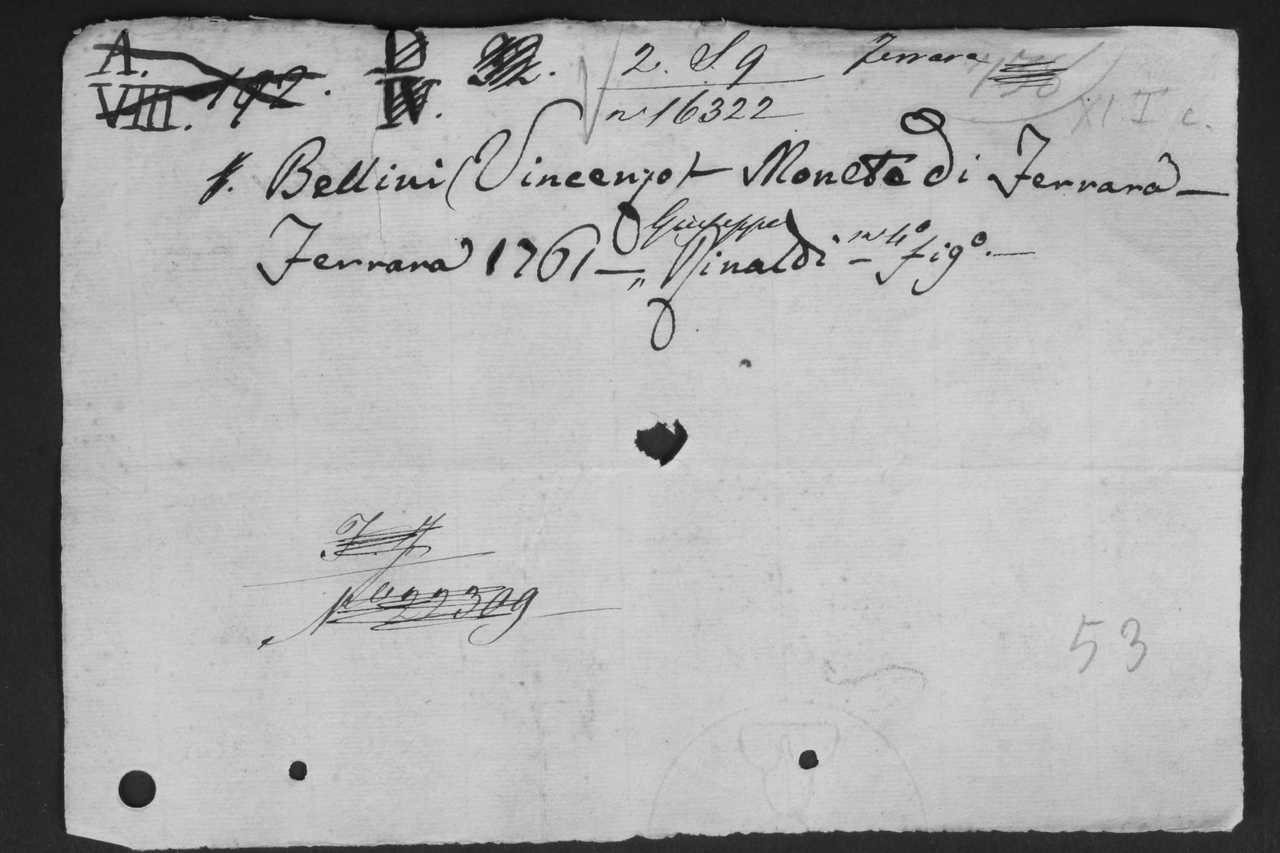 A. D 32. 2. S 9 Ferrara
VIII. 192. IV. n° 16322 XI. I c.
f. Bellini (Vincenzo) Monete di Ferrara —
Giuseppe
Ferrara 1761 — „ Rinaldi — in 4° fig°. —
N° 22309
53